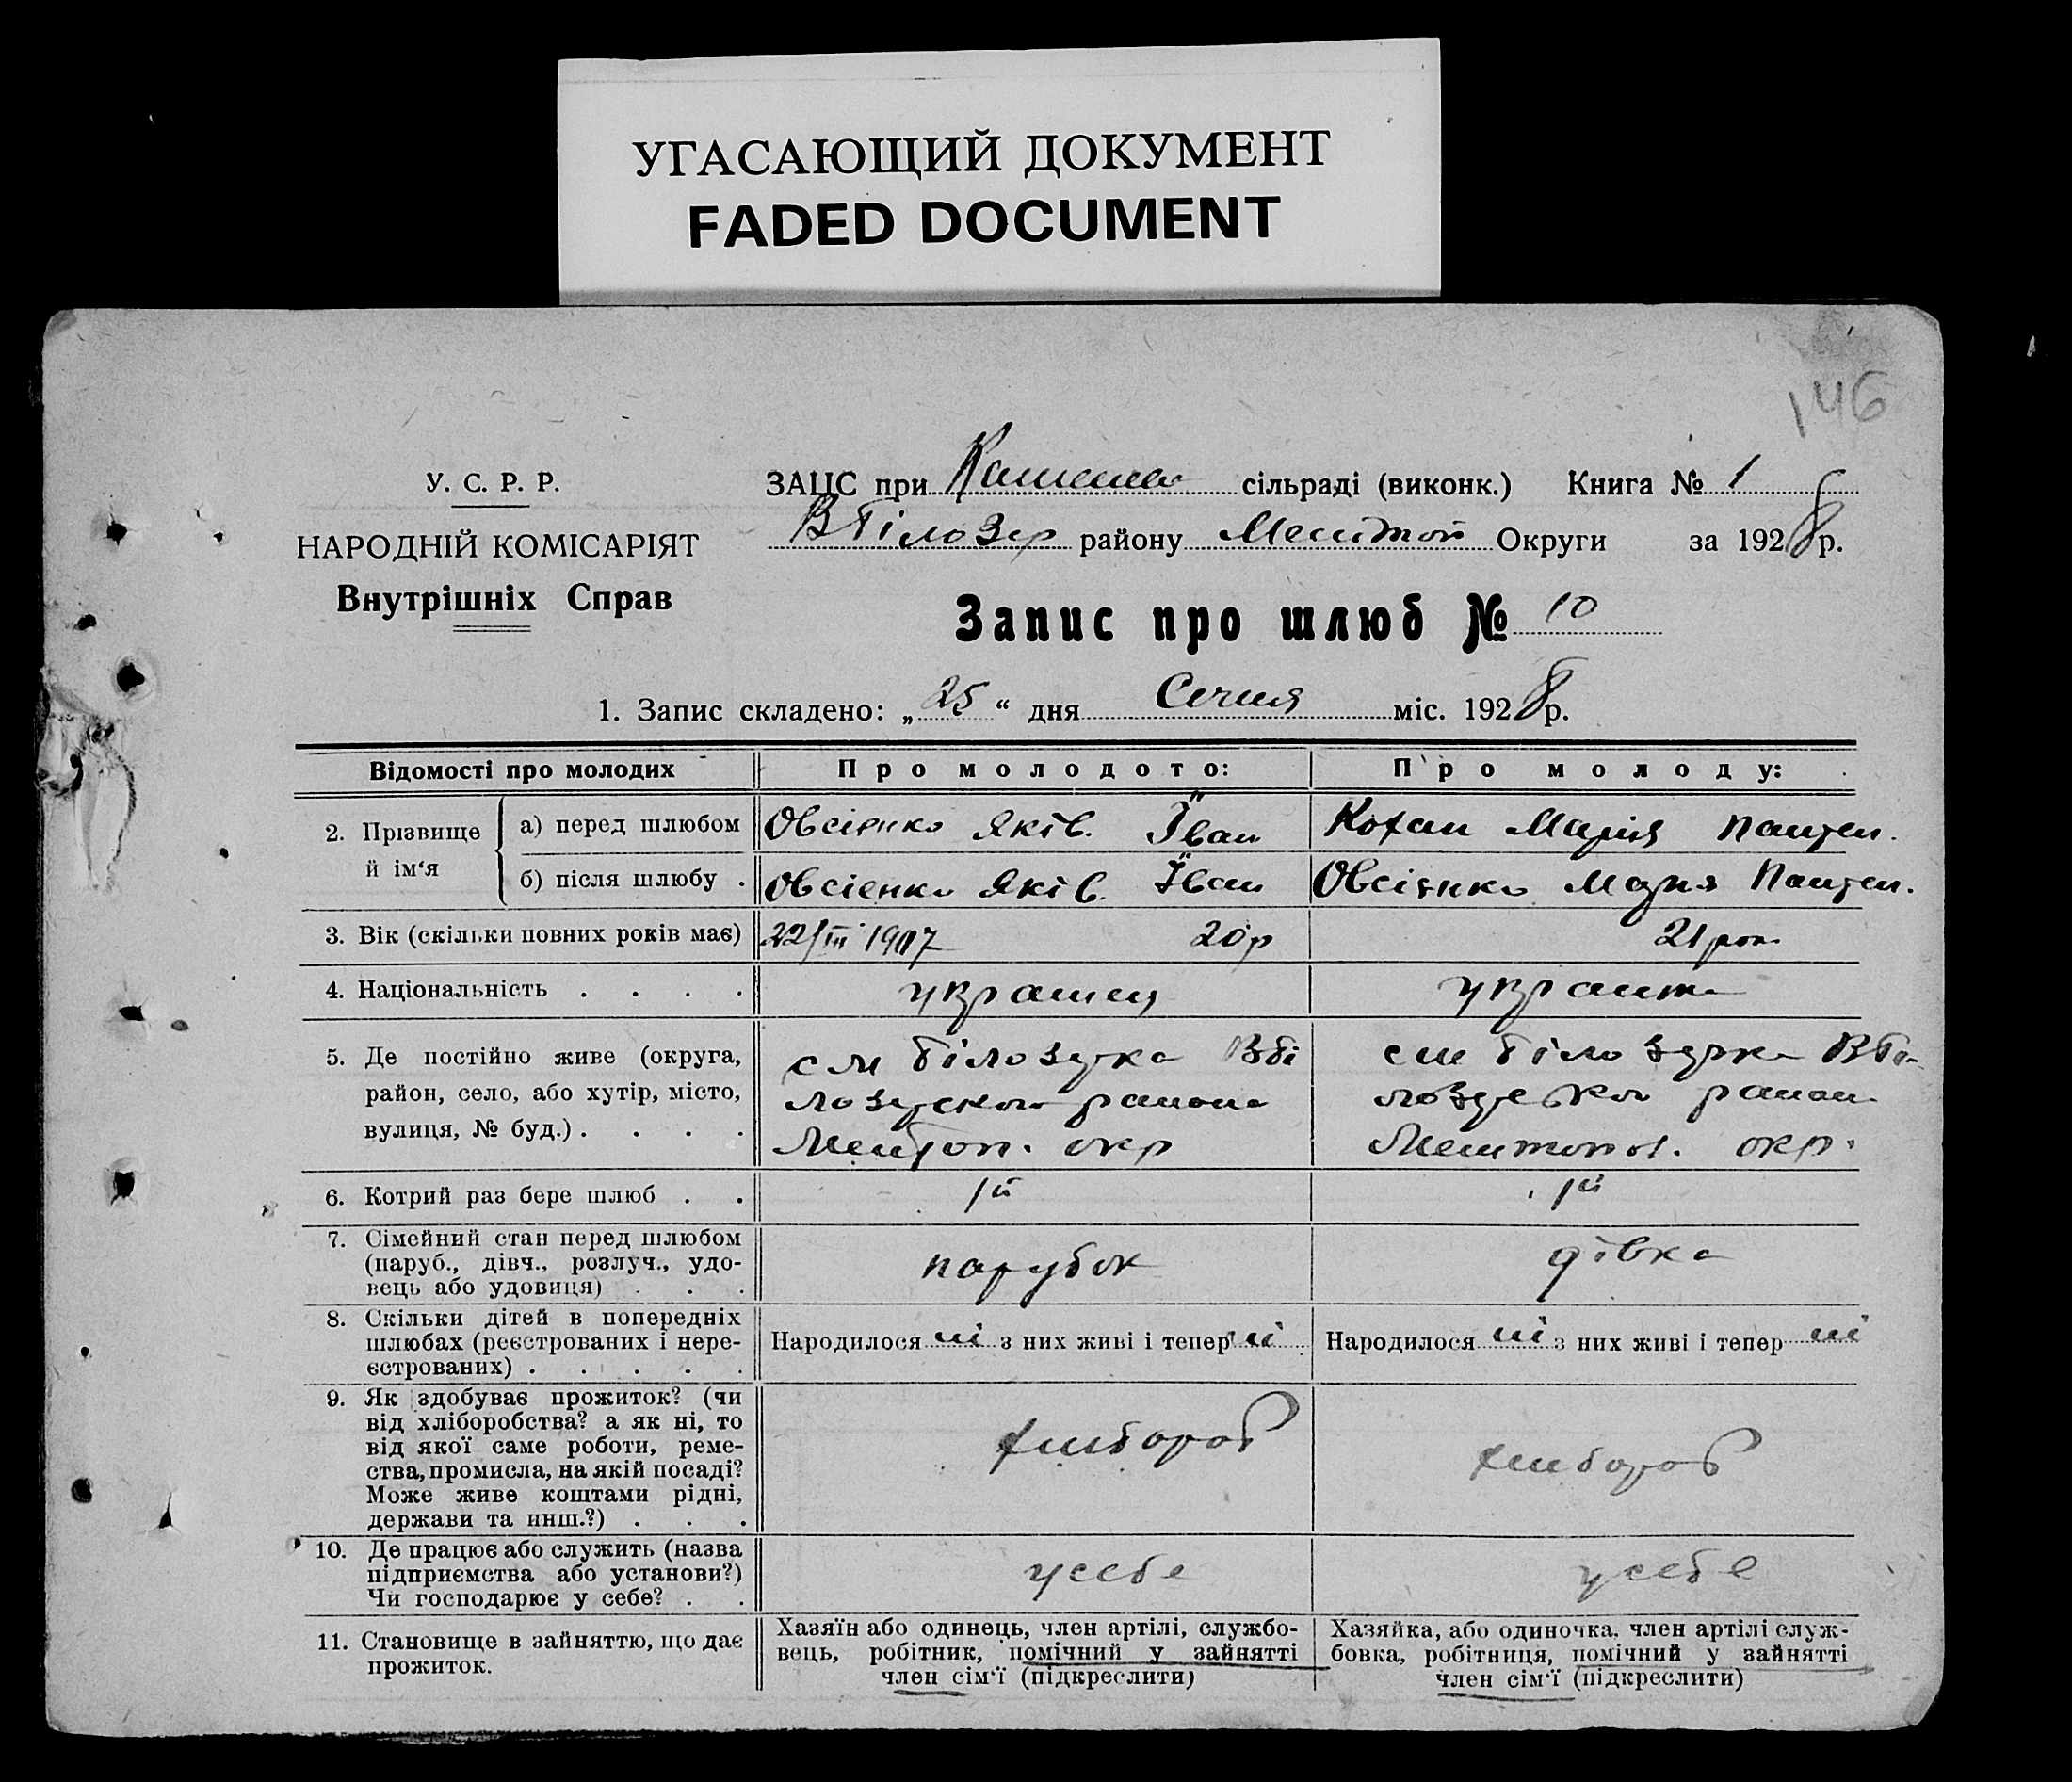 УГАСАЮЩИЙ ДОКУМЕНТ
FADED DOCUMENT
146
У. С. Р. Р.
НАРОДНІЙ КОМІСАРІЯТ
Внутрішніх Справ
ЗАЦС при сільраді (виконк.) Книга № 1
ВБілозер району Округи за 1928 р.
Запис про шлюб № 10
1. Запис складено: „ 25 “ дня Січня міс. 1928 р.
Відомості про молодих
Про молодого:
Про молоду:
2. Прізвище й ім‘я
а) перед шлюбом
Овсієнко Яків. Іван
Кохан Марія Пантел.
б) після шлюбу .
Овсієнко Яків. Іван
Овсієнко Марія Пантел.
3. Вік (скільки повних років має)
22/III 1907 20 р
21 рок
4. Національність . . . .
українець
українка
5. Де постійно живе (округа,
район, село, або хутір, місто,
вулиця, № буд.) . . . .
см білозурка Вбі
лозурского района
Мелітоп. окр
см білозурка ВБі-
лозурского район
Мелитопол. окр.
6. Котрий раз бере шлюб . .
1й
1й
7. Сімейний стан перед шлюбом
(паруб., дівч., розлуч., удо-
вець або удовиця) . . .
парубок
дівка
8. Скільки дітей в попередніх
шлюбах (реєстрованих і нере-
єстрованих) . . . . .
Народилося ні з них живі і тепер ні
Народилося ні з них живі і тепер ні
9. Як здобуває прожиток? (чи
від хліборобства? а як ні, то
від якої саме роботи, реме-
ства, промисла, на якій посаді?
Може живе коштами рідні,
держави та инш.?) . . .
хлібороб
хлібороб
10. Де працює або служить (назва
підприємства або установи?)
Чи господарює у себе? . .
у себе
у себе
11. Становище в зайняттю, що дає
прожиток.
Хазяїн або одинець, член артілі, службо-
вець, робітник, помічний у зайнятті
член сім‘ї (підкреслити)
Хазяйка, або одиночка, член артілі служ-
бовка, робітниця, помічний у зайнятті
член сім‘ї (підкреслити)